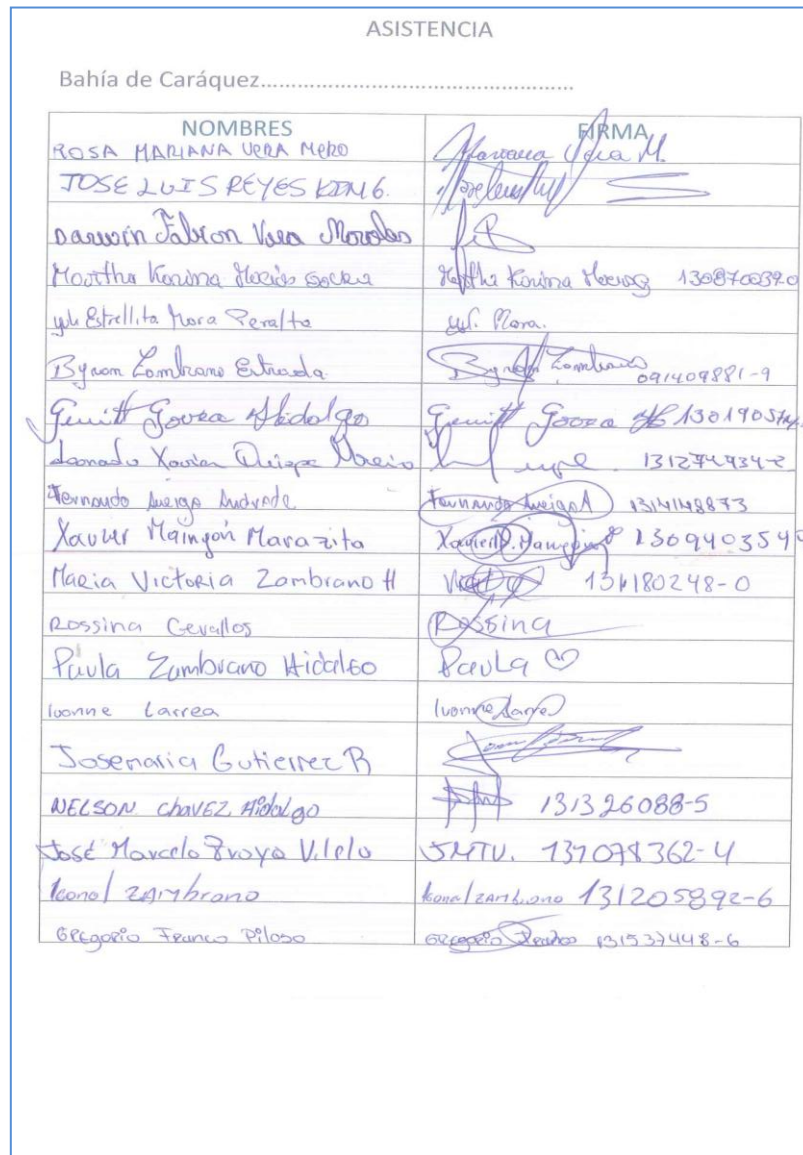 ASISTENCIA
Bahía de Caráquez.................................................
NOMBRES FIRMA
ROSA MARIANA VERA MERO Mariana Vera M.
JOSE LUIS REYES KING.
Darwin Fabion Vera Morales
Karina Macías Karina 130870039-0
Estrellita Mora Peralta Mora.
Byron Zambrano Estrada Byron Zambrano 091409881-9
Hidalgo
Leonardo Xavier Quispe 131274934-2
Fernando Andrade Fernando 1314148873
Xavier Maingón Marazita Xavier 130940354
Maria Victoria Zambrano H 131180248-0
Rossina Cevallos Rossina
Paula Zambrano Hidalgo Paula ♡
Ivonne Larrea Ivonne Larrea
Josemaria Gutierrez R
NELSON chavez Hidalgo 131326088-5
José Marcelo Troya V.lelo JMTV. 131078362-4
ZAMbrano ZAMbrano 131205892-6
GREgoRio Franco Piloso GREgoRio Franco 131537448-6